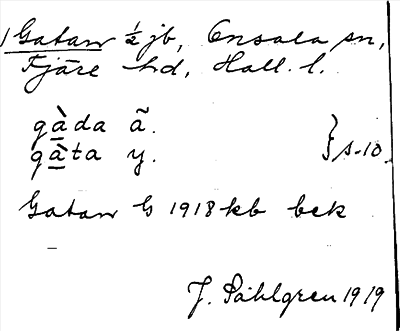 1 Gatan ½ jb, Onsala sn,
Fjäre hd, Hall. l.
gàda ã.
gàta y. } s. 10.
Gatan G 1918 kb bek
J. Sahlgren 1919